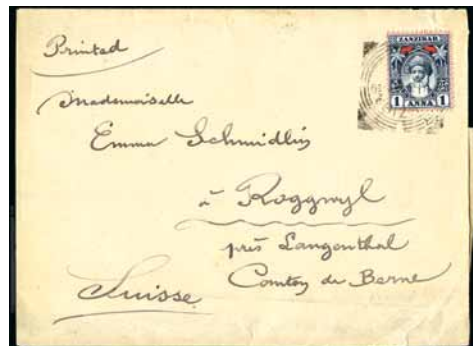 Printed
ZANZIBAR
1 ANNA 1
Mademoiselle
Emma Schmidlin
à Roggwyl
près Langenthal
Comton de Berne
Suisse